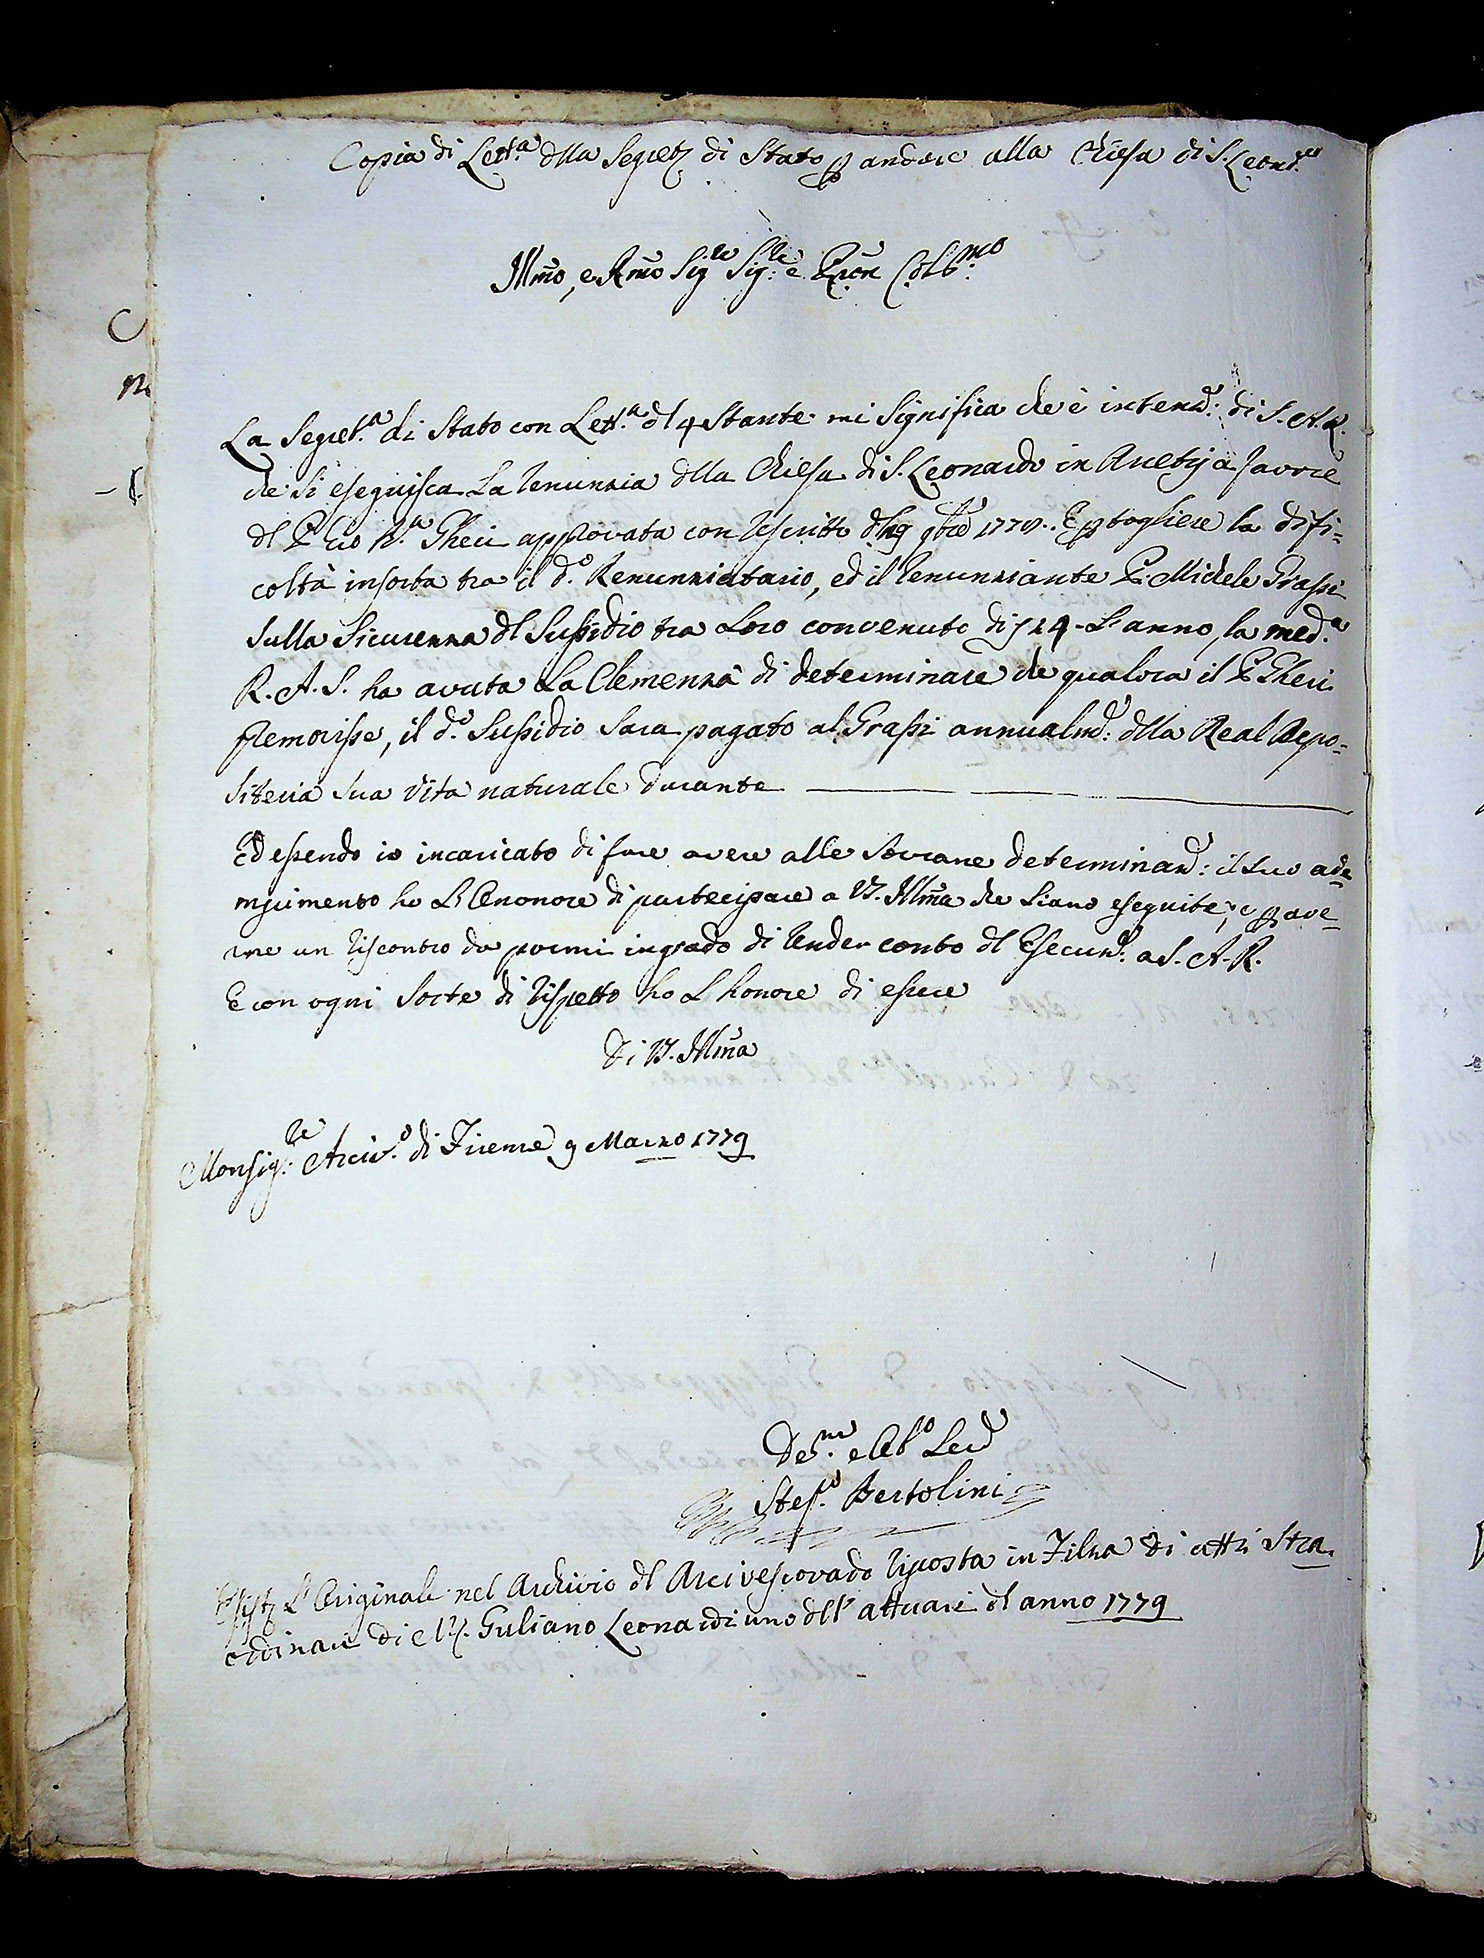 Copia di Lett.ª dlla Segret.ª di Stato p andare alla Chiesa di S. Leon.do
Illmo, e Rmo Sig.re Sig.re e Pron Col.mo
La Segret.ª di Stato con Lett.ª dl 4 Stante mi significa che è intenz.e: di S. A. R.
che si eseguisca la renunzia dlla Chiesa di S. Leonardo in Arcetrj a favore
dl P. Gio B.ª Gheri approvata con rescritto dl 19 9bre 1778. E p togliere la difi=
coltà insorta tra il d.º Renunziatario, ed il renunziante P. Michele Grassi
sulla sicurezza dl sussidio tra loro convenuto di 24 - l'anno, la med.ª
R. A. S. ha avuta la Clemenza di determinare che qualora il P. Gheri
premorisse, il d.º sussidio sara pagato al Grassi annualm.e: dlla Real Depo=
siteria sua vita naturale durante
Ed essendo io incaricato di fare avere alle sovrane determinaz.e: il suo ade
mpimento ho l'onore di partecipare a VS. Illma che siano eseguite; e p ave=
rne un riscontro da pormi in grado di render conto dl Esecuz.e: a S. A. R.
E con ogni sorte di rispetto ho l honore di essere
Di VS. Illma
Monsig.re: Arciv.º di Firenze 9 Marzo 1779
De.mo e Ob.º Ser.e
Stef.º Bertolini
Esiste l'Originale nel Archivio dl Arcivescovado riposta in Filza di atti stra
ordinari di M. Guliano Leonardi uno dll' attuari dl anno 1779